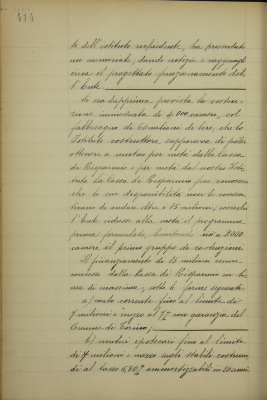 te dell'istituto richiedente, ha presentato
un memoriale, dando notizie e ragguagli
circa il progettato funzionamento del
l'Ente.
Si era dapprima prevista la costru-
zione immediata di 4000 camere, col
fabbisogno di 30 milioni di lire, che lo
Istituto costruttore supponeva di poter
ottenere a mutuo per metà dalla Cassa
di Risparmio e per metà dal nostro Isti-
tuto. La Cassa di Risparmio fece conoscere
che le sue disponibilità non le consen-
tivano di andare oltre i 15 milioni, cosicchè
l'Ente ridusse alla metà il programma
prima formulato, limitando a 2000
camere il primo gruppo di costruzioni.
Il finanziamento di 15 milioni venne
concesso dalla Cassa di Risparmio in li-
nea di massima, sotto le forme seguenti:
a) conto corrente fino al limite di
7 milioni e mezzo al 7% con garanzia del
Comune di Torino;
b) mutui ipotecari fino al limite
di 7 milioni e mezzo sugli stabili costruen-
di al tasso 6,50% ammortizzabili in 30 anni